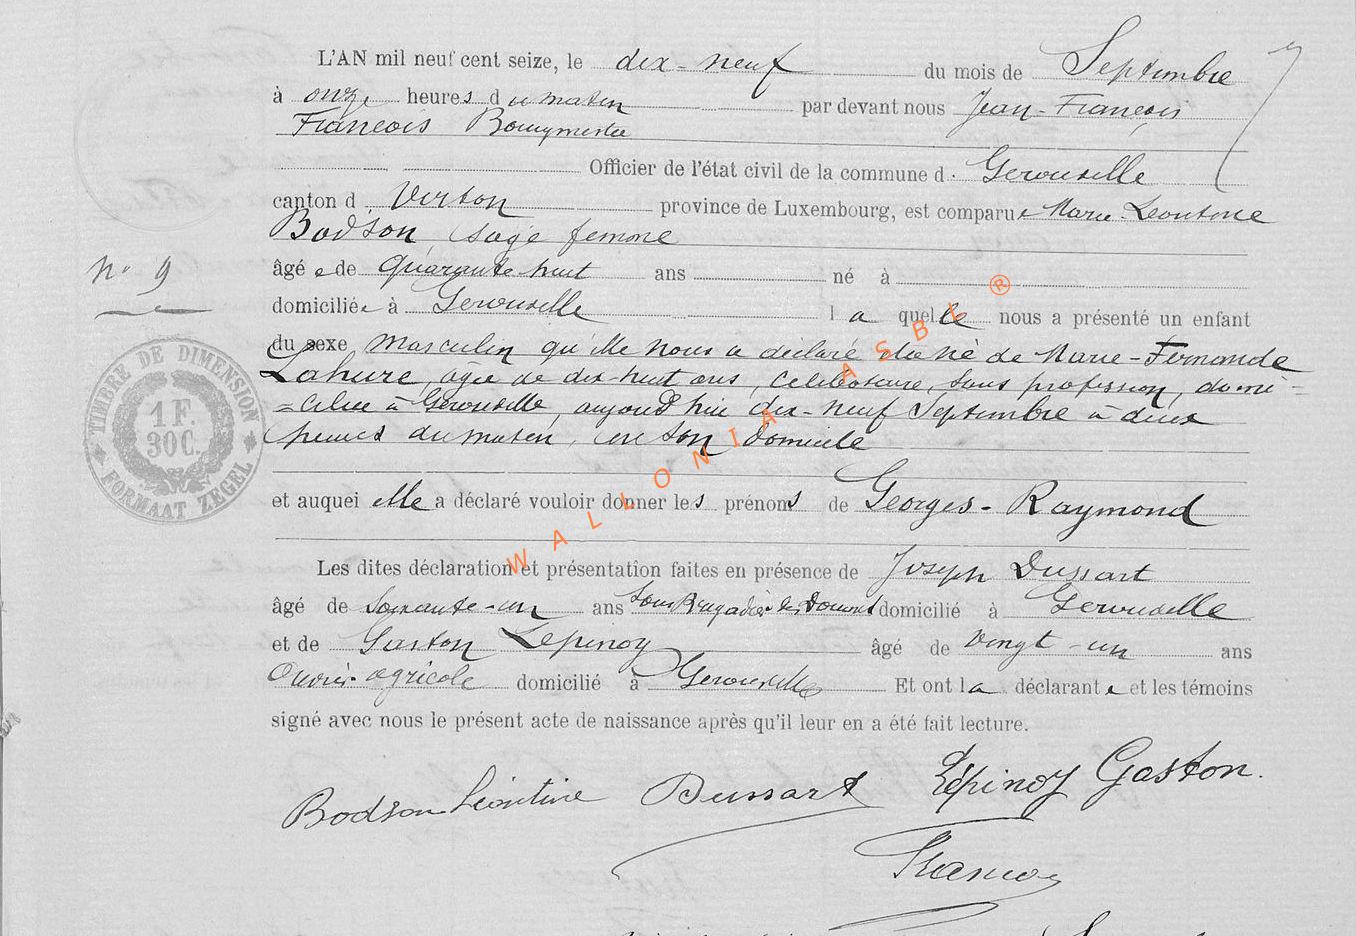 L'AN mil neuf cent seize, le dix-neuf du mois de Septembre
à onze heures du matin par devant nous Jean-François
François Bourgmestre
Officier de l'état civil de la commune d. Gerouville
canton d. Virton province de Luxembourg, est comparue Marie Léontine
Bodson, sage femme
âgée de quarante-huit ans né à
domiciliée à Gerouville laquelle nous a présenté un enfant
du sexe masculin qu'elle nous a déclaré être né de Marie-Fernande
Lahure, agée de dix-huit ans, célibataire, sans profession, domi=
=ciliée à Gerouville, aujourd'hui dix-neuf Septembre à deux
heures du matin, en son domicile
et auquel elle a déclaré vouloir donner les prénoms de Georges-Raymond
Les dites déclaration et présentation faites en présence de Joseph Dussart
N° 9
âgé de soixante-un ans Sous Brigadier des Douanes domicilié à Gerouville
et de Gaston Lépinoy âgé de vingt-un ans
ouvrier agricole domicilié à Gerouville Et ont la déclarante et les témoins
signé avec nous le présent acte de naissance après qu'il leur en a été fait lecture.
Bodson Léontine Dussart Lépinoy Gaston.
François
TIMBRE DE DIMENSION
1 F.
30C.
FORMAAT ZEGEL
WALLONIA ASBL ®